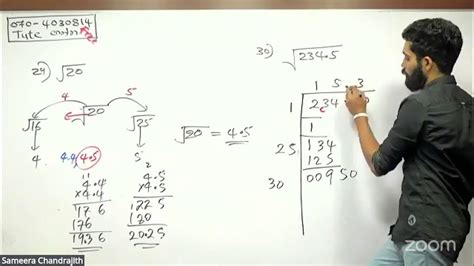 070-4030814
Tute
29) √20
4 5
√20
√16 √25
4 4.4 4.5 5
√20 = 4.5
4.4
×4.4
176
176
1936
2
4.5
×4.5
225
180
20.25
30) √234.5
1 5.3
1 234
1
25 134
125
30 00950
LIVE
zoom
Sameera Chandrajith